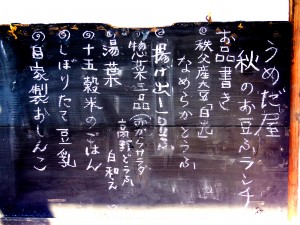 うめだ屋
秋のお豆ふランチ
お品書き
秩父産大豆
なめらかとうふ
揚げ出し豆ふ
惣菜三品 おからサラダ
高野どうふ
白和え
湯葉
十五穀米のごはん
しぼりたて豆乳
自家製おしんこ